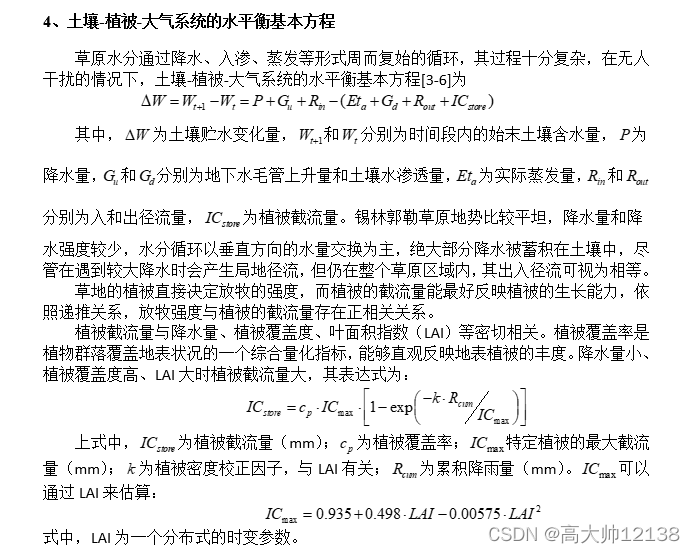 4、土壤-植被-大气系统的水平衡基本方程
草原水分通过降水、入渗、蒸发等形式周而复始的循环，其过程十分复杂，在无人
干扰的情况下，土壤-植被-大气系统的水平衡基本方程[3-6]为
ΔW = W_{t+1} − W_t = P + G_u + R_{in} − (Et_a + G_d + R_{out} + IC_{store})
其中，ΔW为土壤贮水变化量，W_{t+1}和W_t分别为时间段内的始末土壤含水量，P为
降水量，G_u和G_d分别为地下水毛管上升量和土壤水渗透量，Et_a为实际蒸发量，R_{in}和R_{out}
分别为入和出径流量，IC_{store}为植被截流量。锡林郭勒草原地势比较平坦，降水量和降
水强度较少，水分循环以垂直方向的水量交换为主，绝大部分降水被蓄积在土壤中，尽
管在遇到较大降水时会产生局地径流，但仍在整个草原区域内，其出入径流可视为相等。
草地的植被直接决定放牧的强度，而植被的截流量能最好反映植被的生长能力，依
照递推关系，放牧强度与植被的截流量存在正相关关系。
植被截流量与降水量、植被覆盖度、叶面积指数（LAI）等密切相关。植被覆盖率是
植物群落覆盖地表状况的一个综合量化指标，能够直观反映地表植被的丰度。降水量小、
植被覆盖度高、LAI 大时植被截流量大，其表达式为：
IC_{store} = c_p · IC_{max} · [1 − exp(−k · R_{cum} / IC_{max})]
上式中，IC_{store}为植被截流量（mm）；c_p为植被覆盖率；IC_{max}特定植被的最大截流
量（mm）；k为植被密度校正因子，与 LAI 有关；R_{cum}为累积降雨量（mm）。IC_{max}可以
通过 LAI 来估算：
IC_{max} = 0.935 + 0.498 · LAI − 0.00575 · LAI²
式中，LAI 为一个分布式的时变参数。
CSDN @高大帅12138